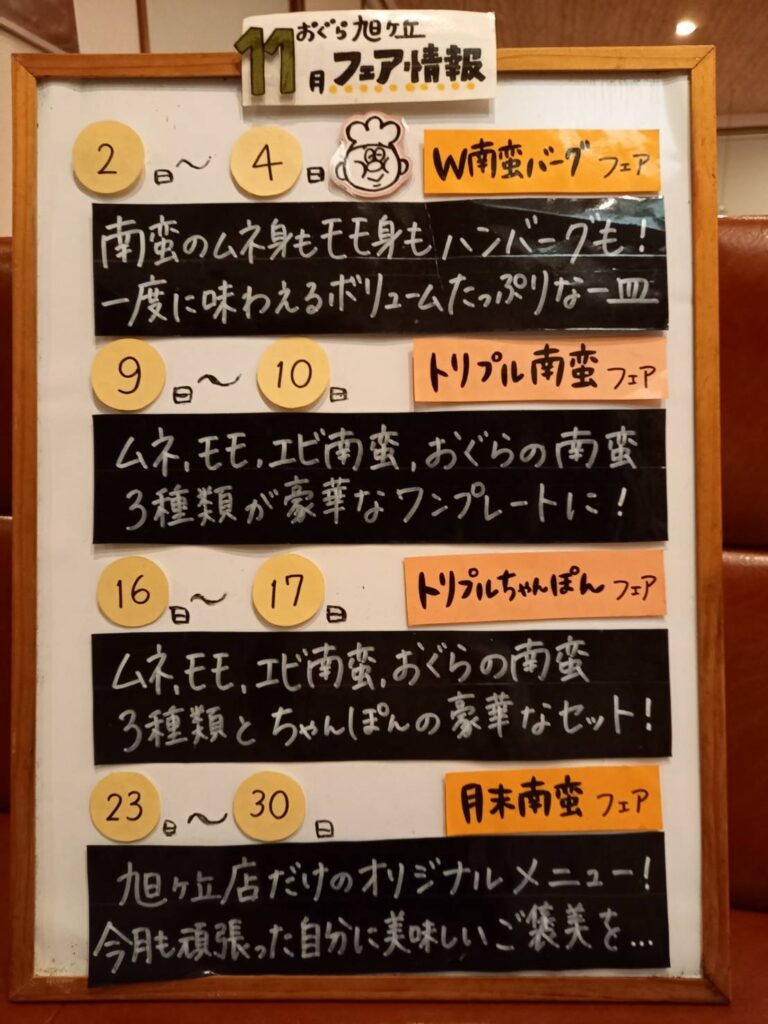 おぐら旭ヶ丘
11月フェア情報
2日〜4日 W南蛮バーグフェア
南蛮のムネ身もモモ身もハンバーグも!
一度に味わえるボリュームたっぷりな一皿
9日〜10日 トリプル南蛮フェア
ムネ,モモ,エビ南蛮,おぐらの南蛮
3種類が豪華なワンプレートに!
16日〜17日 トリプルちゃんぽんフェア
ムネ,モモ,エビ南蛮,おぐらの南蛮
3種類とちゃんぽんの豪華なセット!
23日〜30日 月末南蛮フェア
旭ヶ丘店だけのオリジナルメニュー!
今月も頑張った自分に美味しいご褒美を...